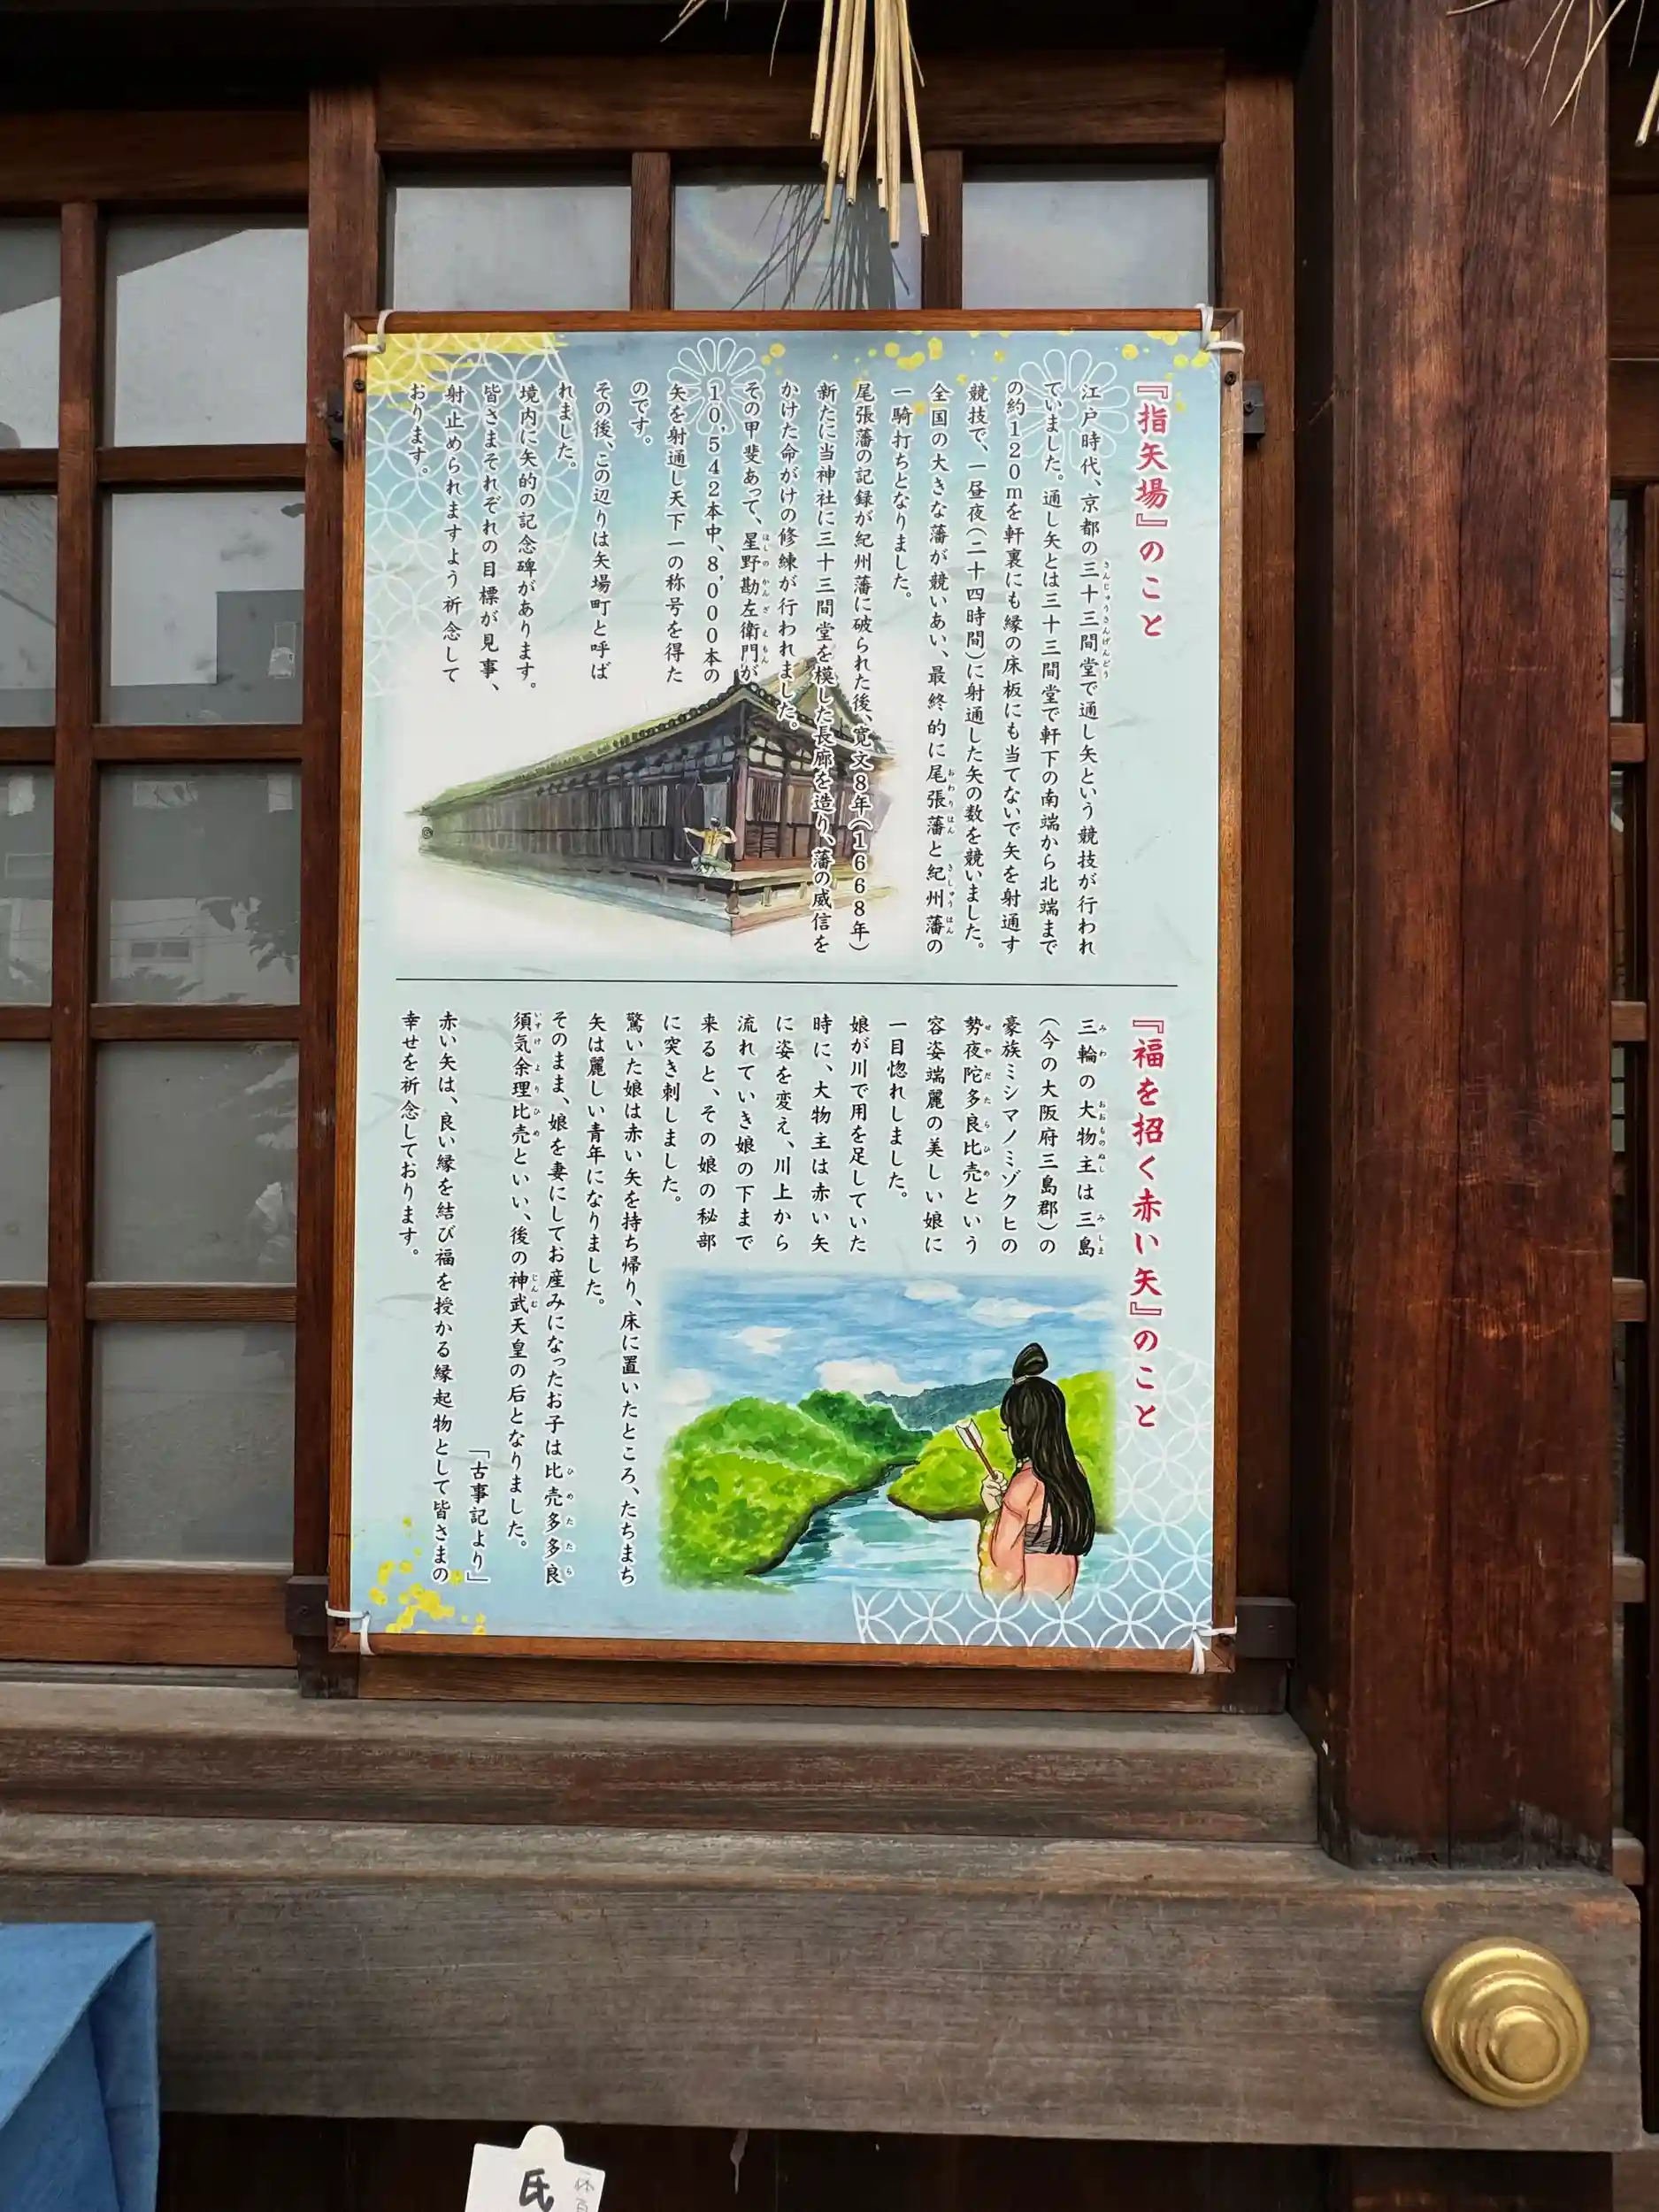 『指矢場』のこと
江戸時代、京都の三十三間堂で通し矢という競技が行われ
ていました。通し矢とは三十三間堂で軒下の南端から北端まで
の約120mを軒裏にも縁の床板にも当てないで矢を射通す
競技で、一昼夜(二十四時間)に射通した矢の数を競いました。
全国の大きな藩が競いあい、最終的に尾張藩と紀州藩の
一騎打ちとなりました。
尾張藩の記録が紀州藩に破られた後、寛文8年(1668年)
新たに当神社に三十三間堂を模した長廊を造り、藩の威信を
かけた命がけの修練が行われました。
その甲斐あって、星野勘左衛門が
10,542本中、8,000本の
矢を射通し天下一の称号を得た
のです。
その後、この辺りは矢場町と呼ば
れました。
境内に矢的の記念碑があります。
皆さまそれぞれの目標が見事、
射止められますよう祈念して
おります。
『福を招く赤い矢』のこと
三輪の大物主は三島
(今の大阪府三島郡)の
豪族ミシマノミゾクヒの
勢夜陀多良比売という
容姿端麗の美しい娘に
一目惚れしました。
娘が川で用を足していた
時に、大物主は赤い矢
に姿を変え、川上から
流れていき娘の下まで
来ると、その娘の秘部
に突き刺しました。
驚いた娘は赤い矢を持ち帰り、床に置いたところ、たちまち
矢は麗しい青年になりました。
そのまま、娘を妻にしてお産みになったお子は比売多多良
須気余理比売といい、後の神武天皇の后となりました。
「古事記より」
赤い矢は、良い縁を結び福を授かる縁起物として皆さまの
幸せを祈念しております。
氏